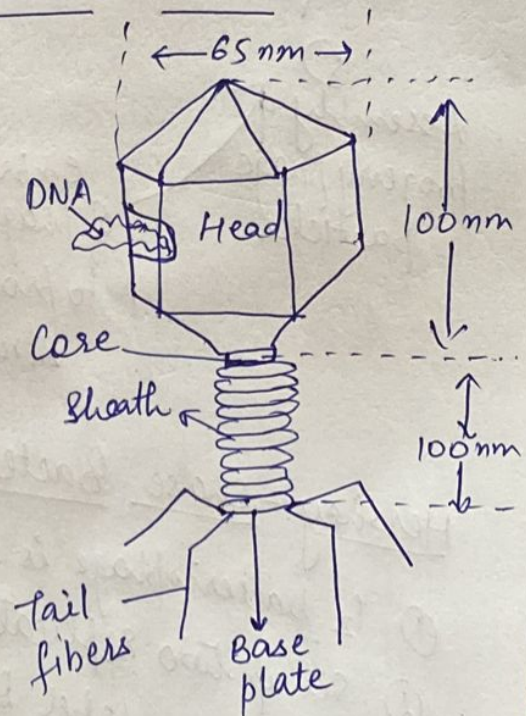 65nm
DNA
Head
100nm
Core
Sheath
100nm
Tail
fibers
Base
plate